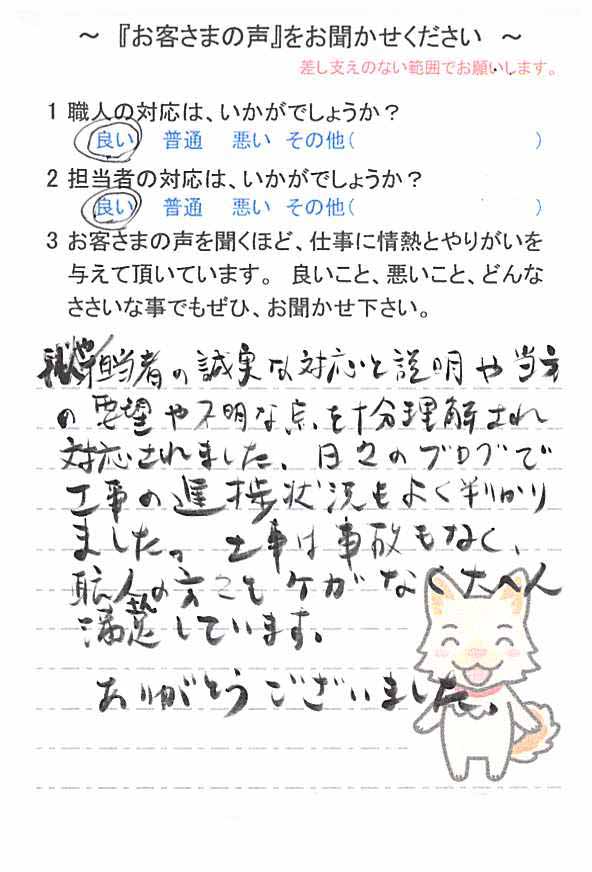 ~ 『お客さまの声』をお聞かせください ~
差し支えのない範囲でお願いします。
1 職人の対応は、いかがでしょうか？
良い 普通 悪い その他( )
2 担当者の対応は、いかがでしょうか？
良い 普通 悪い その他( )
3 お客さまの声を聞くほど、仕事に情熱とやりがいを
与えて頂いています。 良いこと、悪いこと、どんな
ささいな事でもぜひ、お聞かせ下さい。
担当者の誠実な対応と説明や当方
の要望や不明な点を十分理解され
対応されました。日々のブログで
工事の進捗状況もよく判かり
ました。工事は事故もなく、
職人さんの方々もケガなく大へん
満足しています。
ありがとうございました。